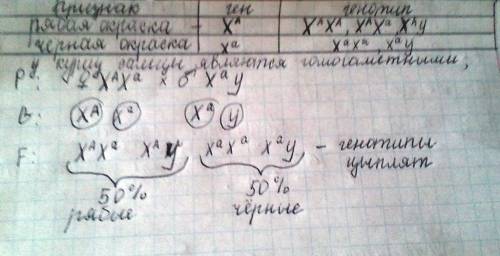 Признак ген генотип
рябая окраска – Xᴬ XᴬXᴬ, XᴬXᵃ, XᴬY
чёрная окраска xᵃ xᵃxᵃ, xᵃy
у куриц самцы являются гомогаметными;
P: ♀ XᴬXᵃ × ♂ XᵃY
G: Xᴬ Xᵃ Xᵃ Y
F: XᴬXᵃ XᴬY XᵃXᵃ XᵃY – генотипы
цыплят
50% 50%
рябые чёрные